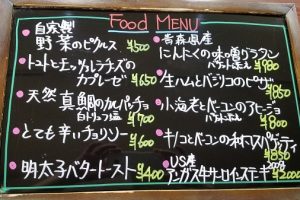 Food MENU
自家製
野菜のピクルス ¥500
トマトとモッツァレラチーズの
カプレーゼ ¥650
天然 真鯛のカルパッチョ
白トリュフ塩 ¥700
とても辛いチョリソー
¥600
明太子バタートースト ¥400
青森県産
にんにくの味噌グラタン
バケット付 ¥800
生ハムとバジリコのピザ
¥850
小海老とベーコンのアヒージョ
バケット付 ¥800
キノコとベーコンの和風スパゲティ
¥850
US産 200g
アンガス牛サーロインステーキ ¥2000